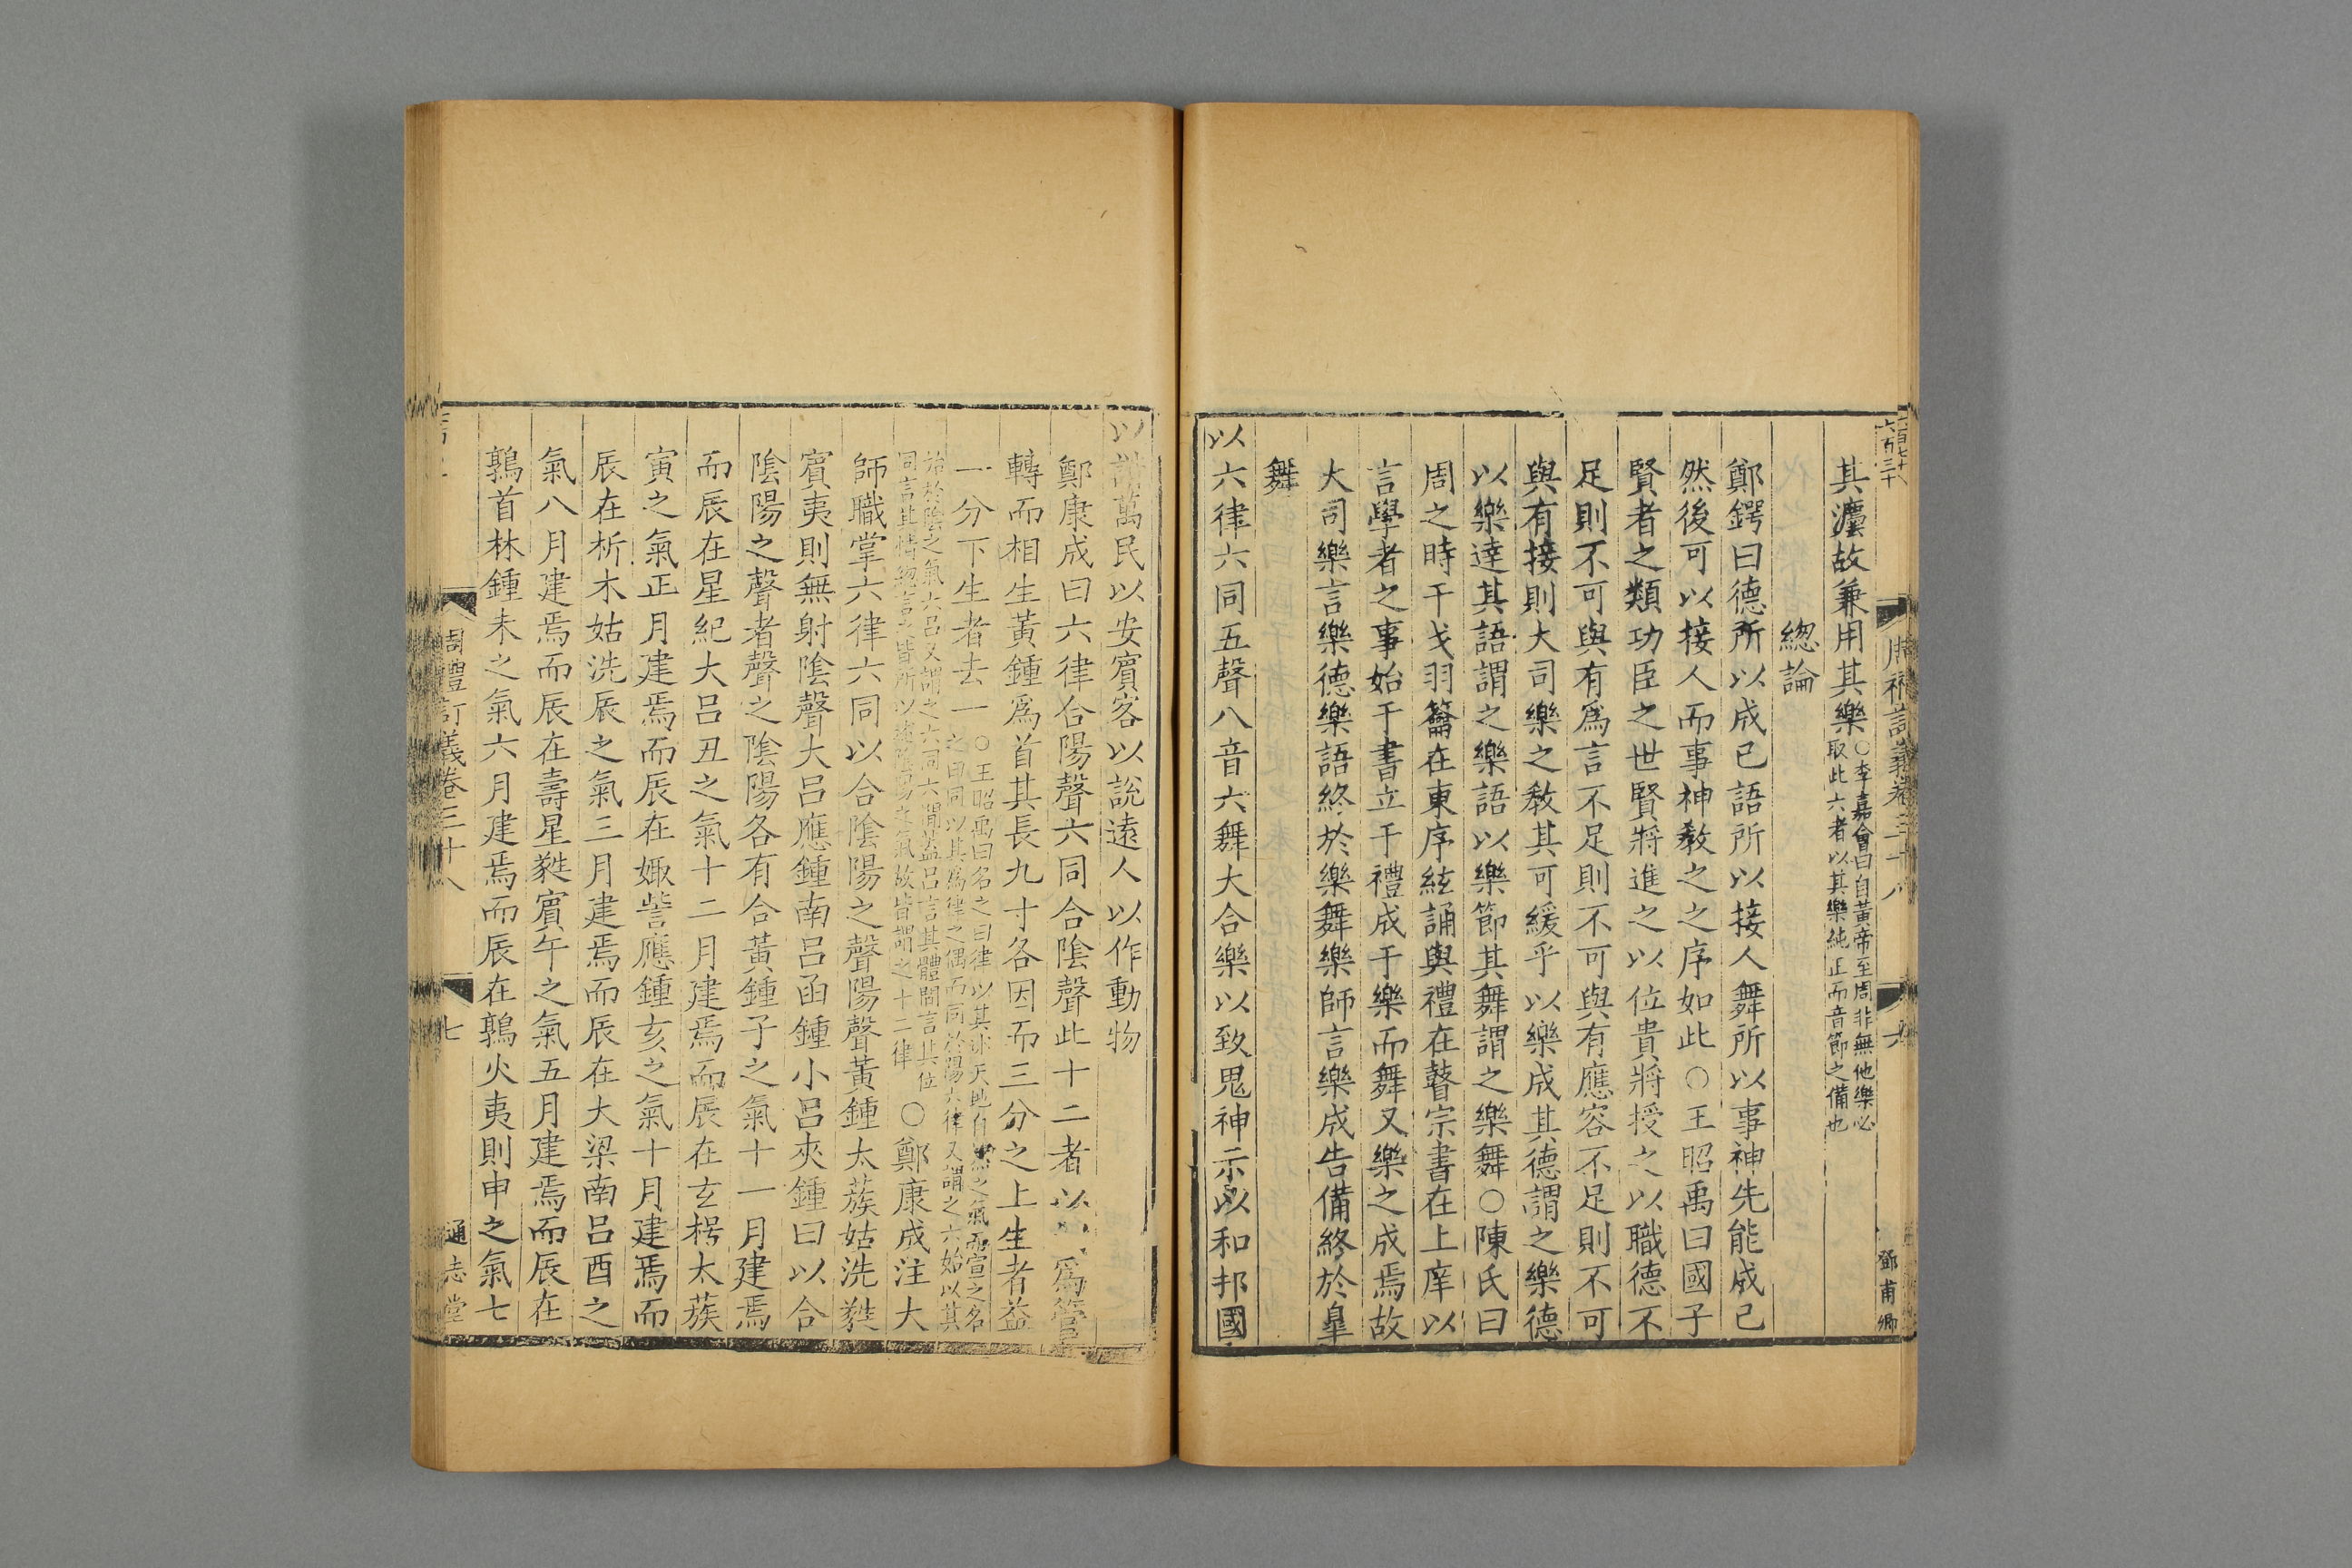 周禮訂義卷三十八
六
鄧甫卿
其灋故兼用其樂
○李嘉會曰自黃帝至周非無他樂必
取此六者以其樂純正而音節之備也
總論
鄭鍔曰德所以成已語所以接人舞所以事神先能成已
然後可以接人而事神教之之序如此○王昭禹曰國子
賢者之類功臣之世賢將進之以位貴將授之以職德不
足則不可與有爲言不足則不可與有應容不足則不可
與有接則大司樂之教其可緩乎以樂成其德謂之樂德
以樂達其語謂之樂語以樂節其舞謂之樂舞○陳氏曰
周之時干戈羽籥在東序絃誦與禮在瞽宗書在上庠以
言學者之事始于書立于禮成于樂而舞又樂之成焉故
大司樂言樂德樂語終於樂舞樂師言樂成告備終於臯
舞
以六律六同五聲八音六舞大合樂以致鬼神示以和邦國
以諧萬民以安賓客以說遠人以作動物
鄭康成曰六律合陽聲六同合陰聲此十二者以 爲管
轉而相生黃鍾爲首其長九寸各因而三分之上生者益
一分下生者去一
○王昭禹曰名之曰律以其述天地自然之氣而宣之名
之曰同以其爲律之偶而同於陽六律又謂之六始以其
始於陰之氣六呂又謂之六同六間葢呂言其體間言其位
同言其情總言之皆所以述陰陽之氣故皆謂之十二律
○鄭康成注大
師職掌六律六同以合陰陽之聲陽聲黃鍾太蔟姑洗蕤
賓夷則無射陰聲大呂應鍾南呂函鍾小呂夾鍾曰以合
陰陽之聲者聲之陰陽各有合黃鍾子之氣十一月建焉
而辰在星紀大呂丑之氣十二月建焉而辰在玄枵太蔟
寅之氣正月建焉而辰在娵訾應鍾亥之氣十月建焉而
辰在析木姑洗辰之氣三月建焉而辰在大梁南呂酉之
氣八月建焉而辰在壽星蕤賓午之氣五月建焉而辰在
鶉首林鍾未之氣六月建焉而辰在鶉火夷則申之氣七
周禮訂義卷三十八
七
通志堂